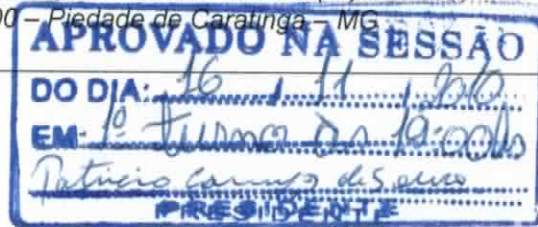 00 – Piedade de Caratinga – MG
APROVADO NA SESSÃO
DO DIA: 16 / 11 /
EM- 1º turno às 19:00hs
Patricio de Souza
PRESIDENTE